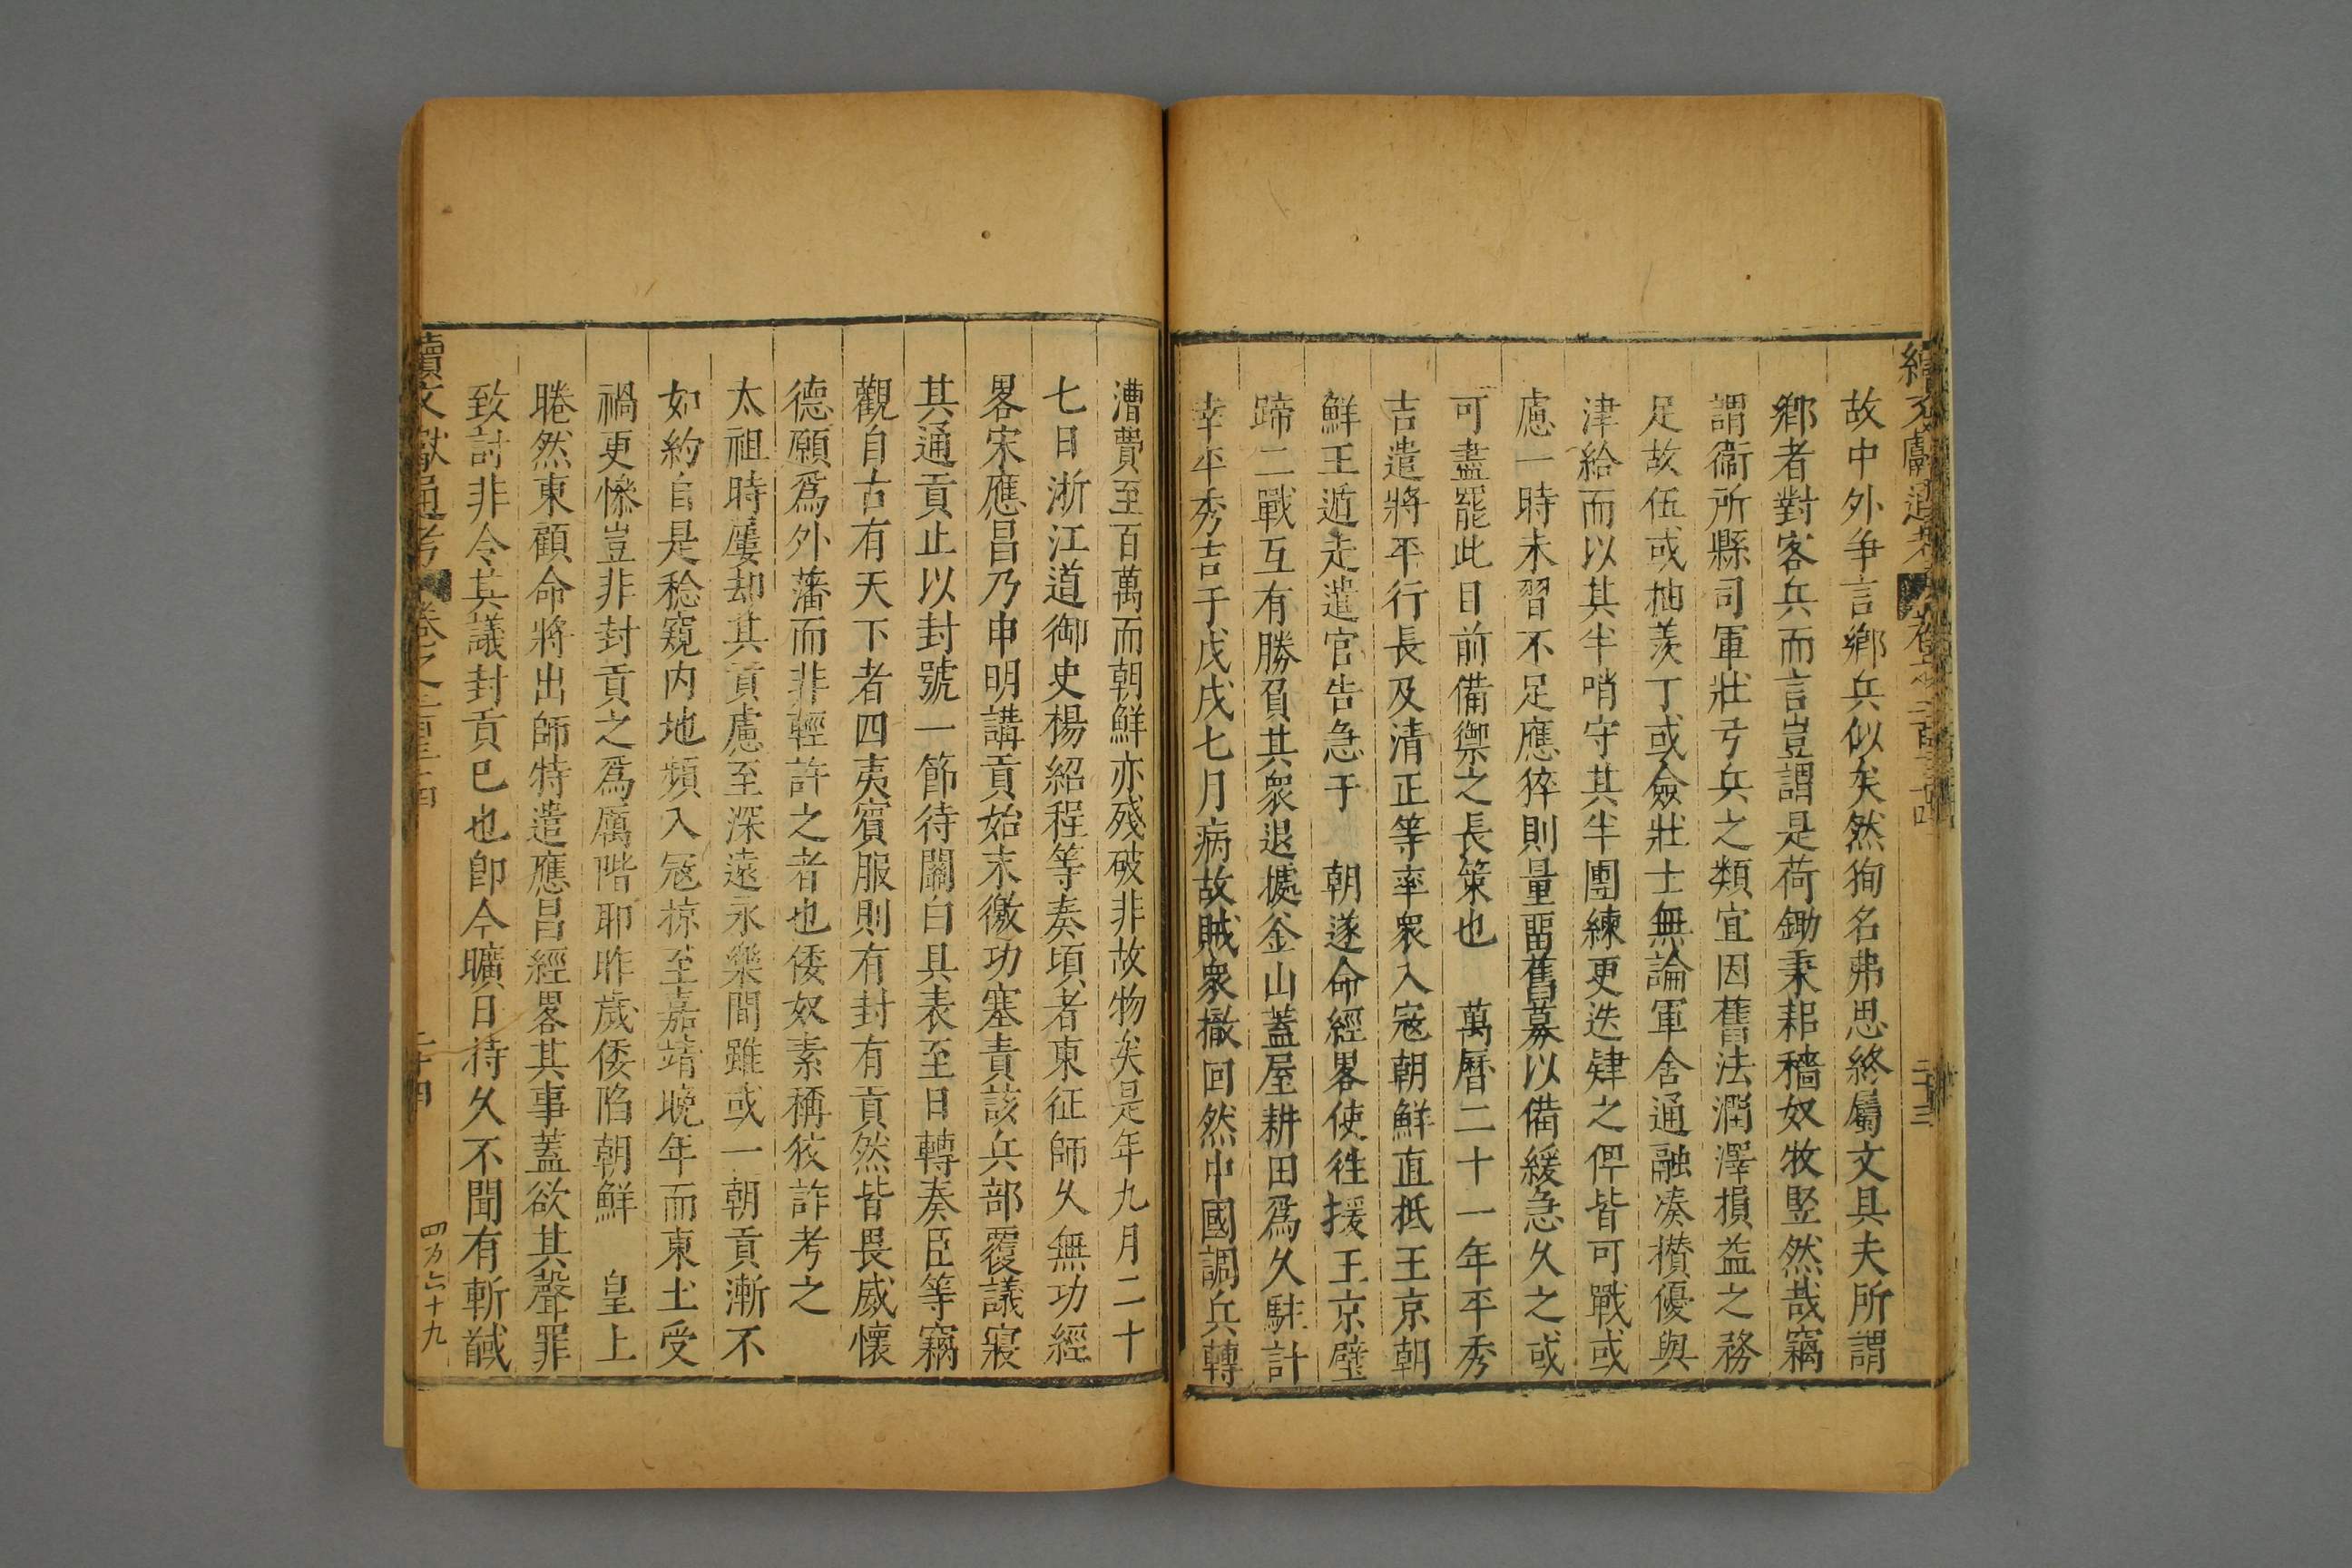 續文獻通考 卷之二百三十四 二十三
故中外爭言鄉兵似矣然狥名弗思終屬文具夫所謂
鄉者對客兵而言豈謂是荷鋤秉耜穡奴牧竪然哉竊
謂衞所縣司軍壯弓兵之類宜因舊法潤澤損益之務
足故伍或抽羨丁或僉壯士無論軍舍通融凑攅優與
津給而以其半哨守其半團練更迭肄之俾皆可戰或
慮一時未習不足應猝則量畱舊募以備緩急久之或
可盡罷此目前備禦之長策也 萬曆二十一年平秀
吉遣將平行長及清正等率衆入寇朝鮮直抵王京朝
鮮王遁走遣官告急于 朝遂命經畧使徃援王京壁
蹄二戰互有勝負其衆退據釜山蓋屋耕田爲久駐計
幸平秀吉于戊戌七月病故賊衆撤回然中國調兵轉
漕費至百萬而朝鮮亦殘破非故物矣是年九月二十
七日浙江道御史楊紹程等奏頃者東征師久無功經
畧宋應昌乃申明講貢始末徼功塞責該兵部覆議寢
其通貢止以封號一節待關白具表至日轉奏臣等竊
觀自古有天下者四夷賓服則有封有貢然皆畏威懷
德願爲外藩而非輕許之者也倭奴素稱狡詐考之
太祖時屢却其貢慮至深遠永樂間雖或一朝貢漸不
如約自是稔窺內地頻入寇掠至嘉靖晚年而東土受
禍更慘豈非封貢之爲厲階耶昨歲倭陷朝鮮 皇上
睠然東顧命將出師特遣應昌經畧其事蓋欲其聲罪
致討非令其議封貢已也卽今曠日持久不聞有斬馘
續文獻通考 卷之二百三十四 二十四 四万六十九